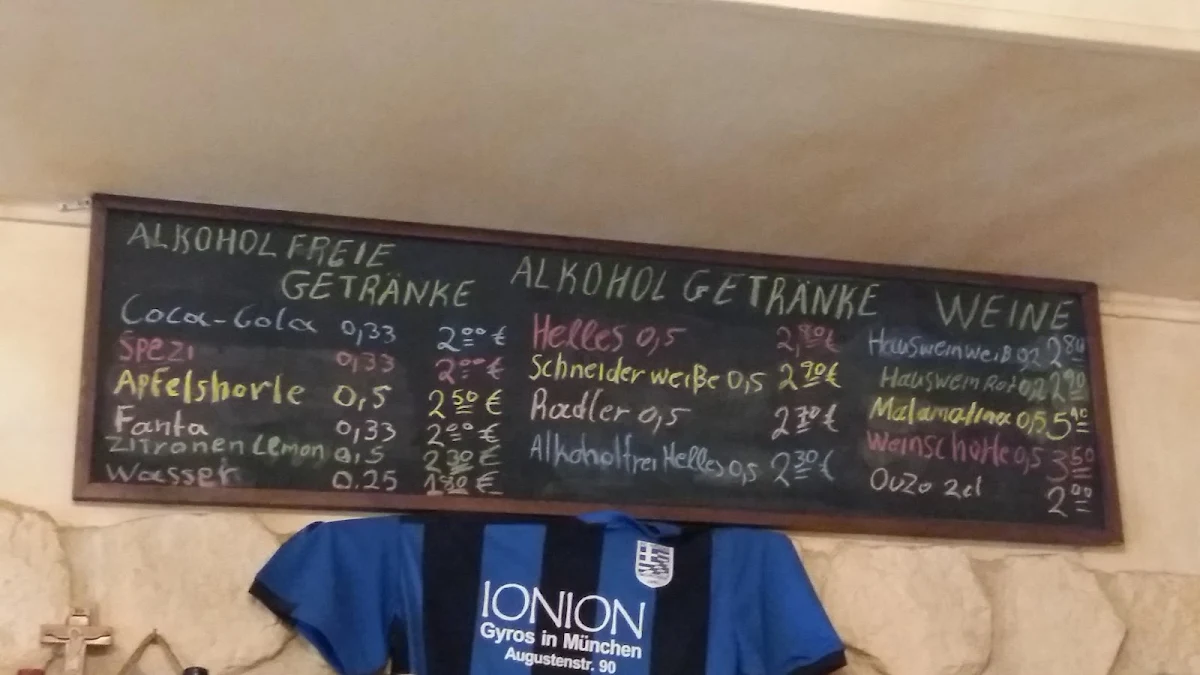 ALKOHOL FREIE
GETRÄNKE
Coca-Cola 0,33 2,00 €
Spezi 0,33 2,00 €
Apfelshorle 0,5 2,50 €
Fanta 0,33 2,00 €
Zitronen Lemon 0,5 2,30 €
Wasser 0.25 1,80 €
ALKOHOL GETRÄNKE
Helles 0,5 2,80 €
Schneider weiße 0,5 2,90 €
Radler 0,5 2,70 €
Alkoholfrei Helles 0,5 2,30 €
WEINE
Hauswein weiß 0,2 2,80
Hauswein Rot 0,2 2,90
Malamatina 0,5
Weinschorle 0,5 3,50
Ouzo 2cl 2,00
IONION
Gyros in München
Augustenstr. 90